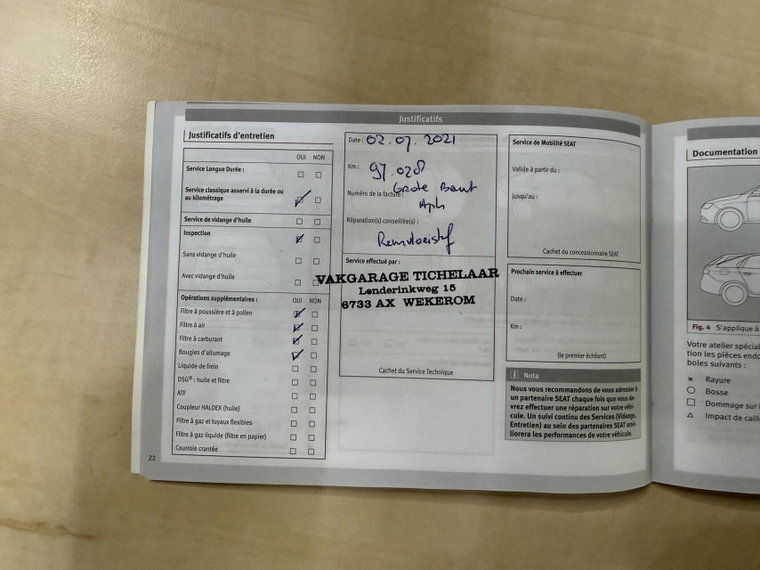 Justificatifs
Justificatifs d'entretien
OUI NON
Service Longue Durée :
Service classique asservi à la durée ou
au kilométrage
Service de vidange d'huile
Inspection
Sans vidange d'huile
Avec vidange d'huile
Opérations supplémentaires : OUI NON
Filtre à poussière et à pollen
Filtre à air
Filtre à carburant
Bougies d'allumage
Liquide de frein
DSG® : huile et filtre
ATF
Coupleur HALDEX (huile)
Filtre à gaz et tuyaux flexibles
Filtre à gaz liquide (filtre en papier)
Courroie crantée
22
Date : 02.07.2021
Km : 97.028
Numéro de la facture : Grote Beurt
Réparation(s) conseillée(s) :
Remvloeistof
Service effectué par :
VAKGARAGE TICHELAAR
Lenderinkweg 15
6733 AX WEKEROM
Cachet du Service Technique
Service de Mobilité SEAT
Valide à partir du :
jusqu'au :
Cachet du concessionnaire SEAT
Prochain service à effectuer
Date :
Km :
(le premier échéant)
Nota
Nous vous recommandons de vous adresser à
un partenaire SEAT chaque fois que vous de-
vrez effectuer une réparation sur votre véhi-
cule. Un suivi continu des Services (Vidange,
Entretien) au sein des partenaires SEAT amé-
liorera les performances de votre véhicule.
Documentation
Fig. 4 S'applique à
Votre atelier spécial
tion les pièces endo
boles suivants :
Rayure
Bosse
Dommage sur
Impact de cail